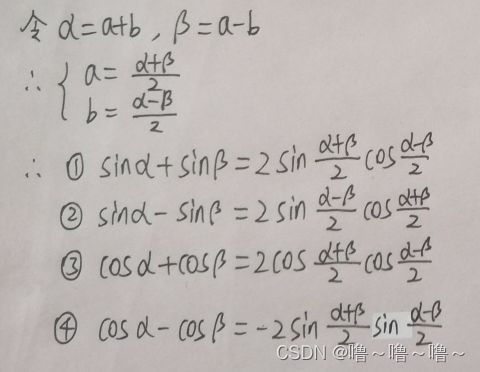 令 α=a+b , β=a-b
∴ { a= (α+β)/2
b= (α-β)/2
∴ ① sinα+sinβ=2sin (α+β)/2 cos (α-β)/2
② sinα-sinβ=2sin (α-β)/2 cos (α+β)/2
③ cosα+cosβ=2cos (α+β)/2 cos (α-β)/2
④ cosα-cosβ=-2sin (α+β)/2 sin (α-β)/2
CSDN @噜~噜~噜~